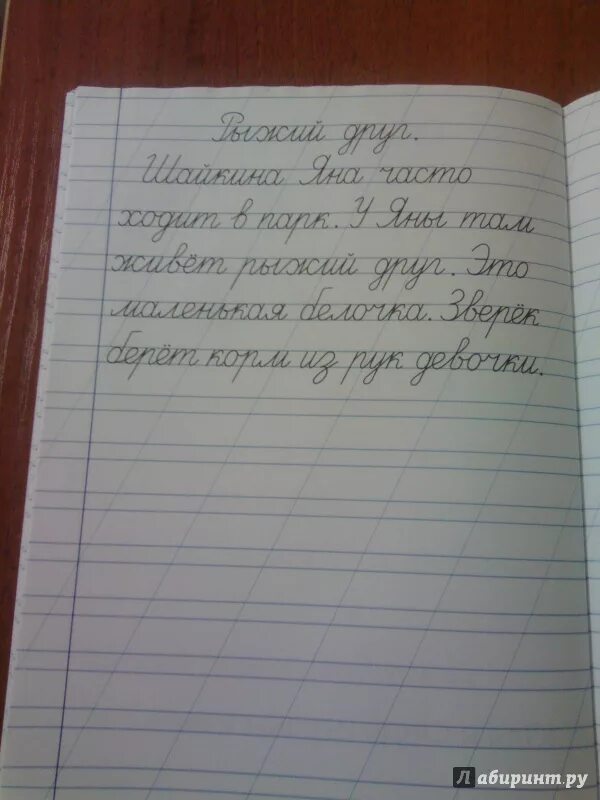 Рыжий друг.
Шайкина Яна часто
ходит в парк. У Яны там
живёт рыжий друг. Это
маленькая белочка. Зверёк
берёт корм из рук девочки.
Лабиринт.ру